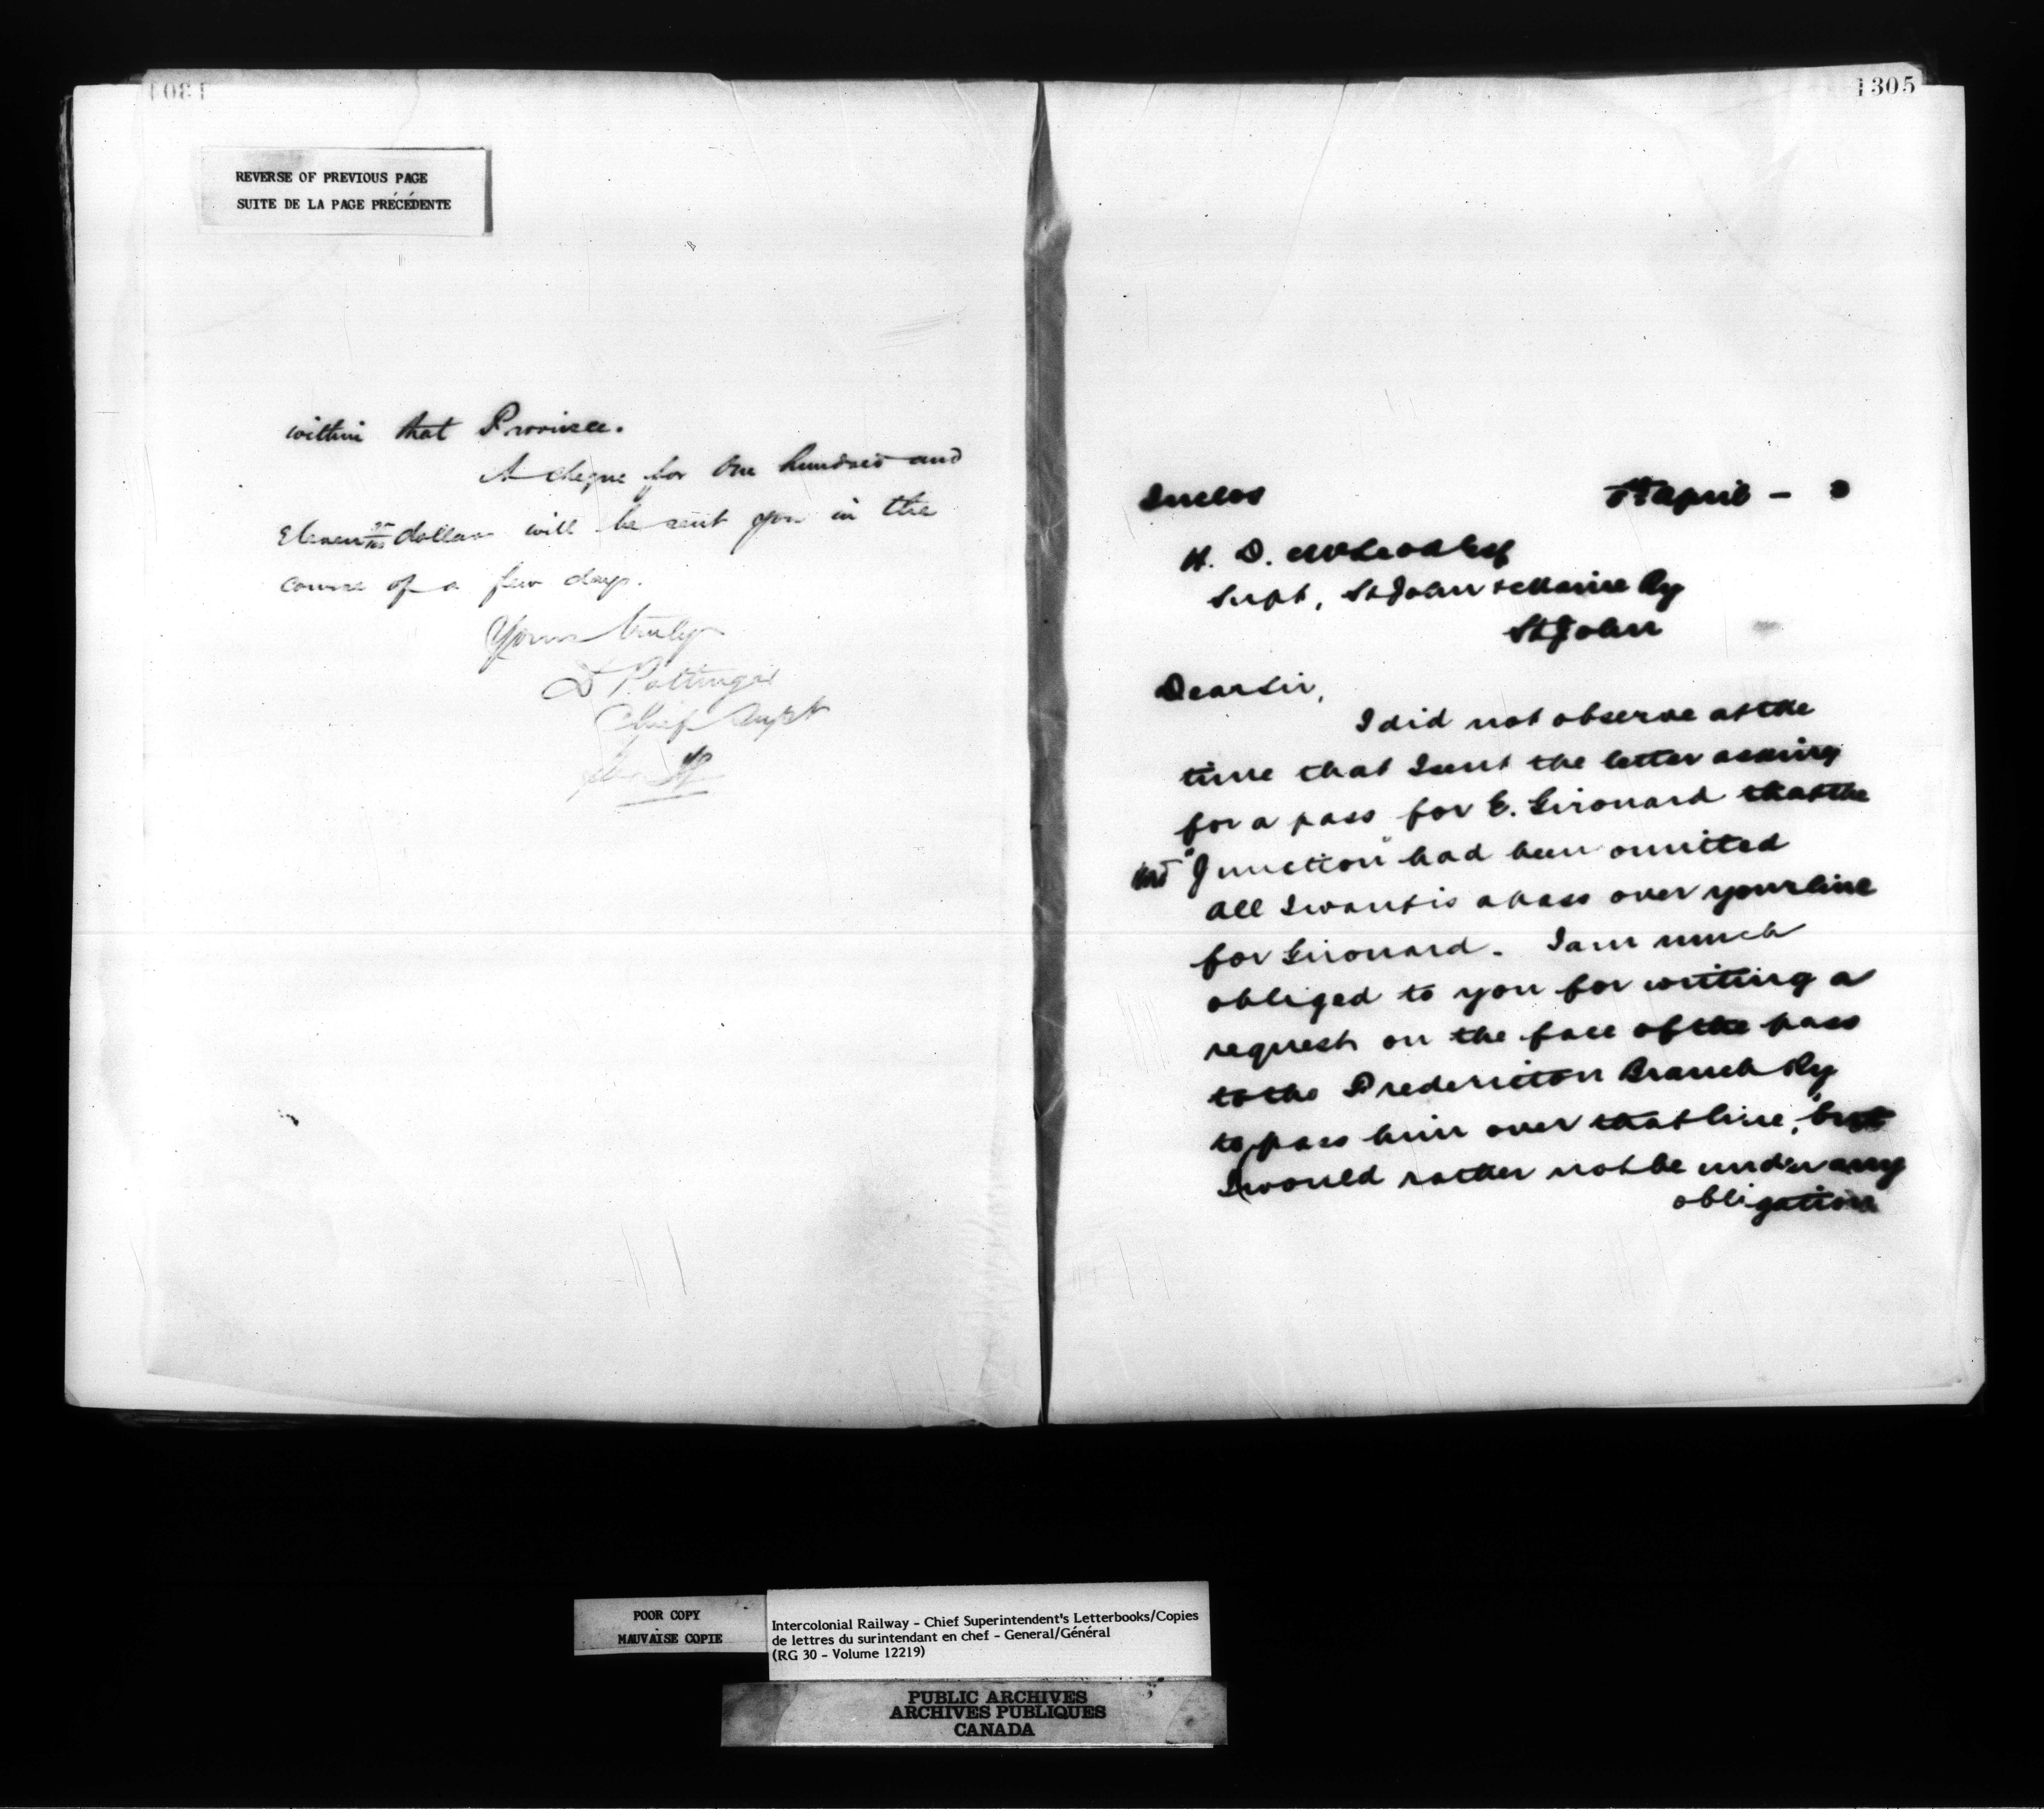 REVERSE OF PREVIOUS PAGE
SUITE DE LA PAGE PRÉCÉDENTE
within that Province.
A cheque for One hundred and
Eleven dollars will be sent you in the
course of a few days.
Yours truly
D Pottinger
Chief Supt
1305
Inclos
April -
H. D. McLeod Esq
Supt, St John & Maine Ry
St John
Dear Sir,
I did not observe at the
time that I sent the letter asking
for a pass for E. Girouard that the
"Junction" had been omitted
All I want is a pass over your line
for Girouard. I am much
obliged to you for writing a
request on the face of the pass
to the Fredericton Branch Ry
to pass him over that line, but
I would rather not be under any
obligation
POOR COPY
MAUVAISE COPIE
Intercolonial Railway - Chief Superintendent's Letterbooks/Copies
de lettres du surintendant en chef - General/Général
(RG 30 - Volume 12219)
PUBLIC ARCHIVES
ARCHIVES PUBLIQUES
CANADA